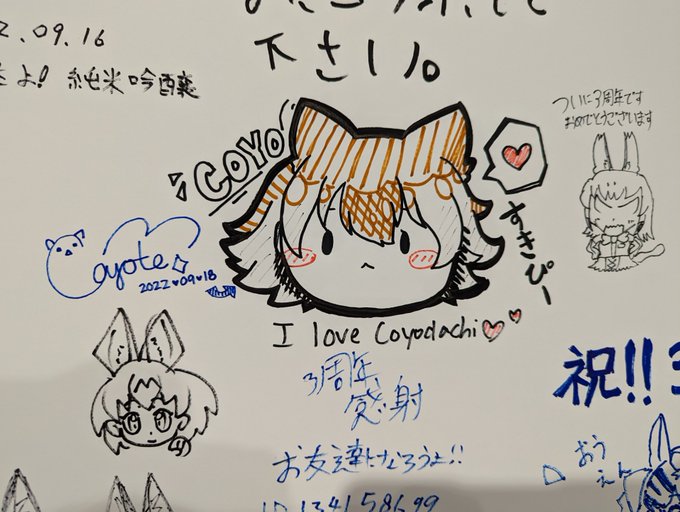 2.09.16
よ! 純米吟醸
下さい。
COYO
すきぴー
ついに3周年です
おめでとうございます
Coyote
2022 09 18
I love Coyodachi
3周年
感射
お友達になろうよ!!
ID 134158699
祝!! 3
おう
えん